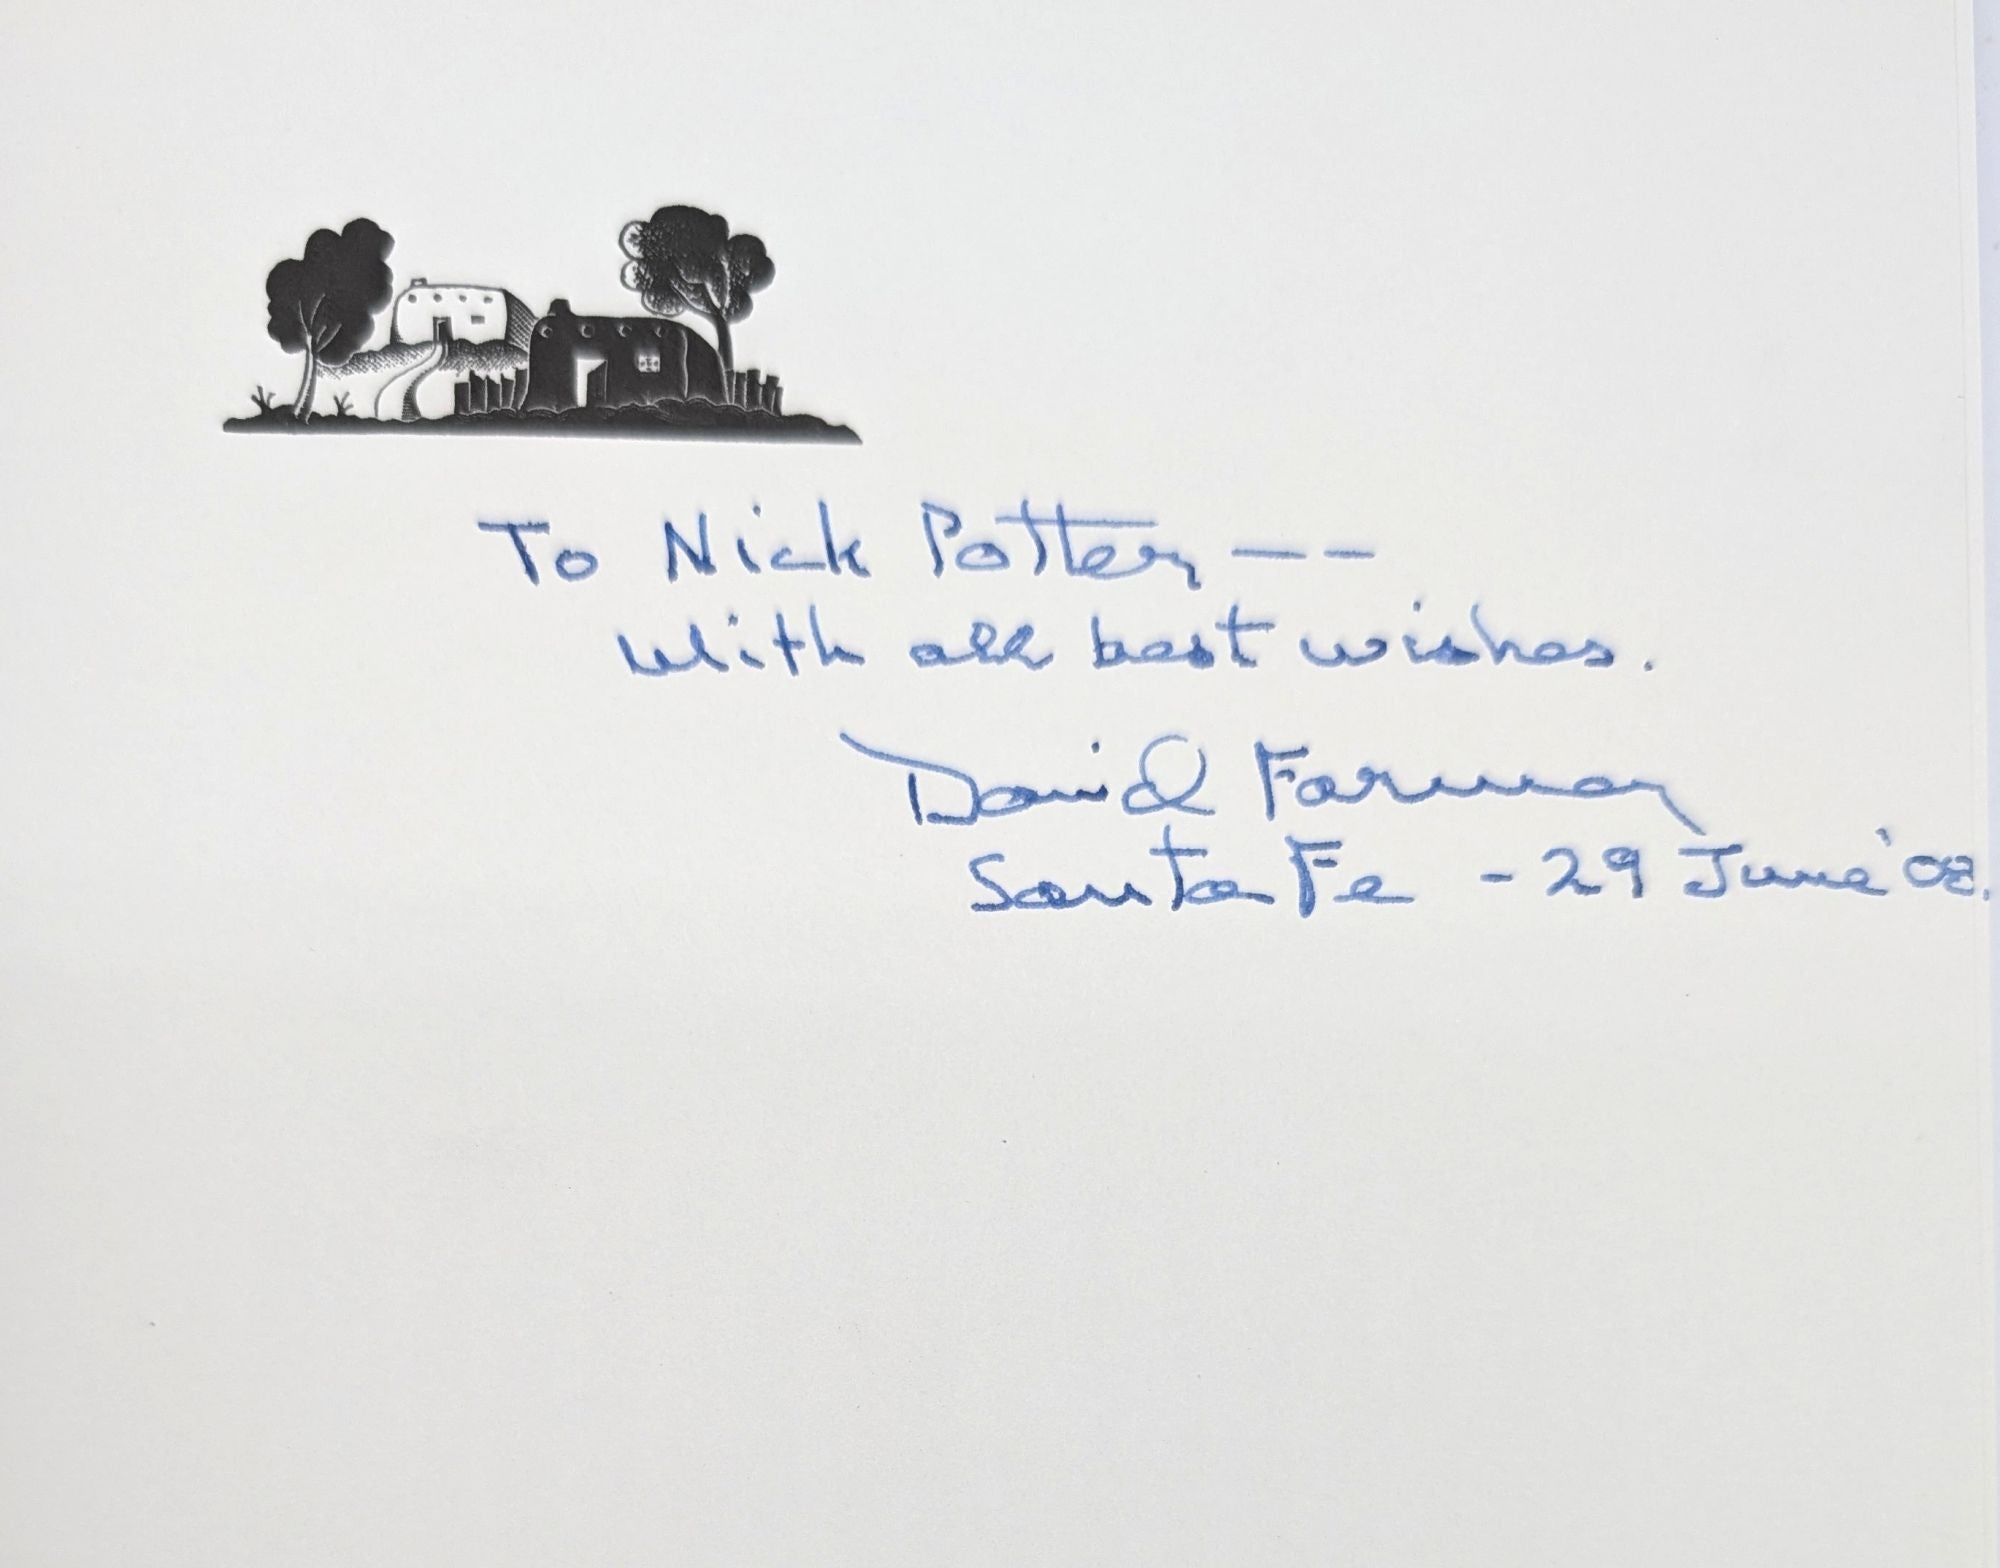 To Nick Potter — –
With all best wishes.
David Farmer
Santa Fe - 29 June '08.